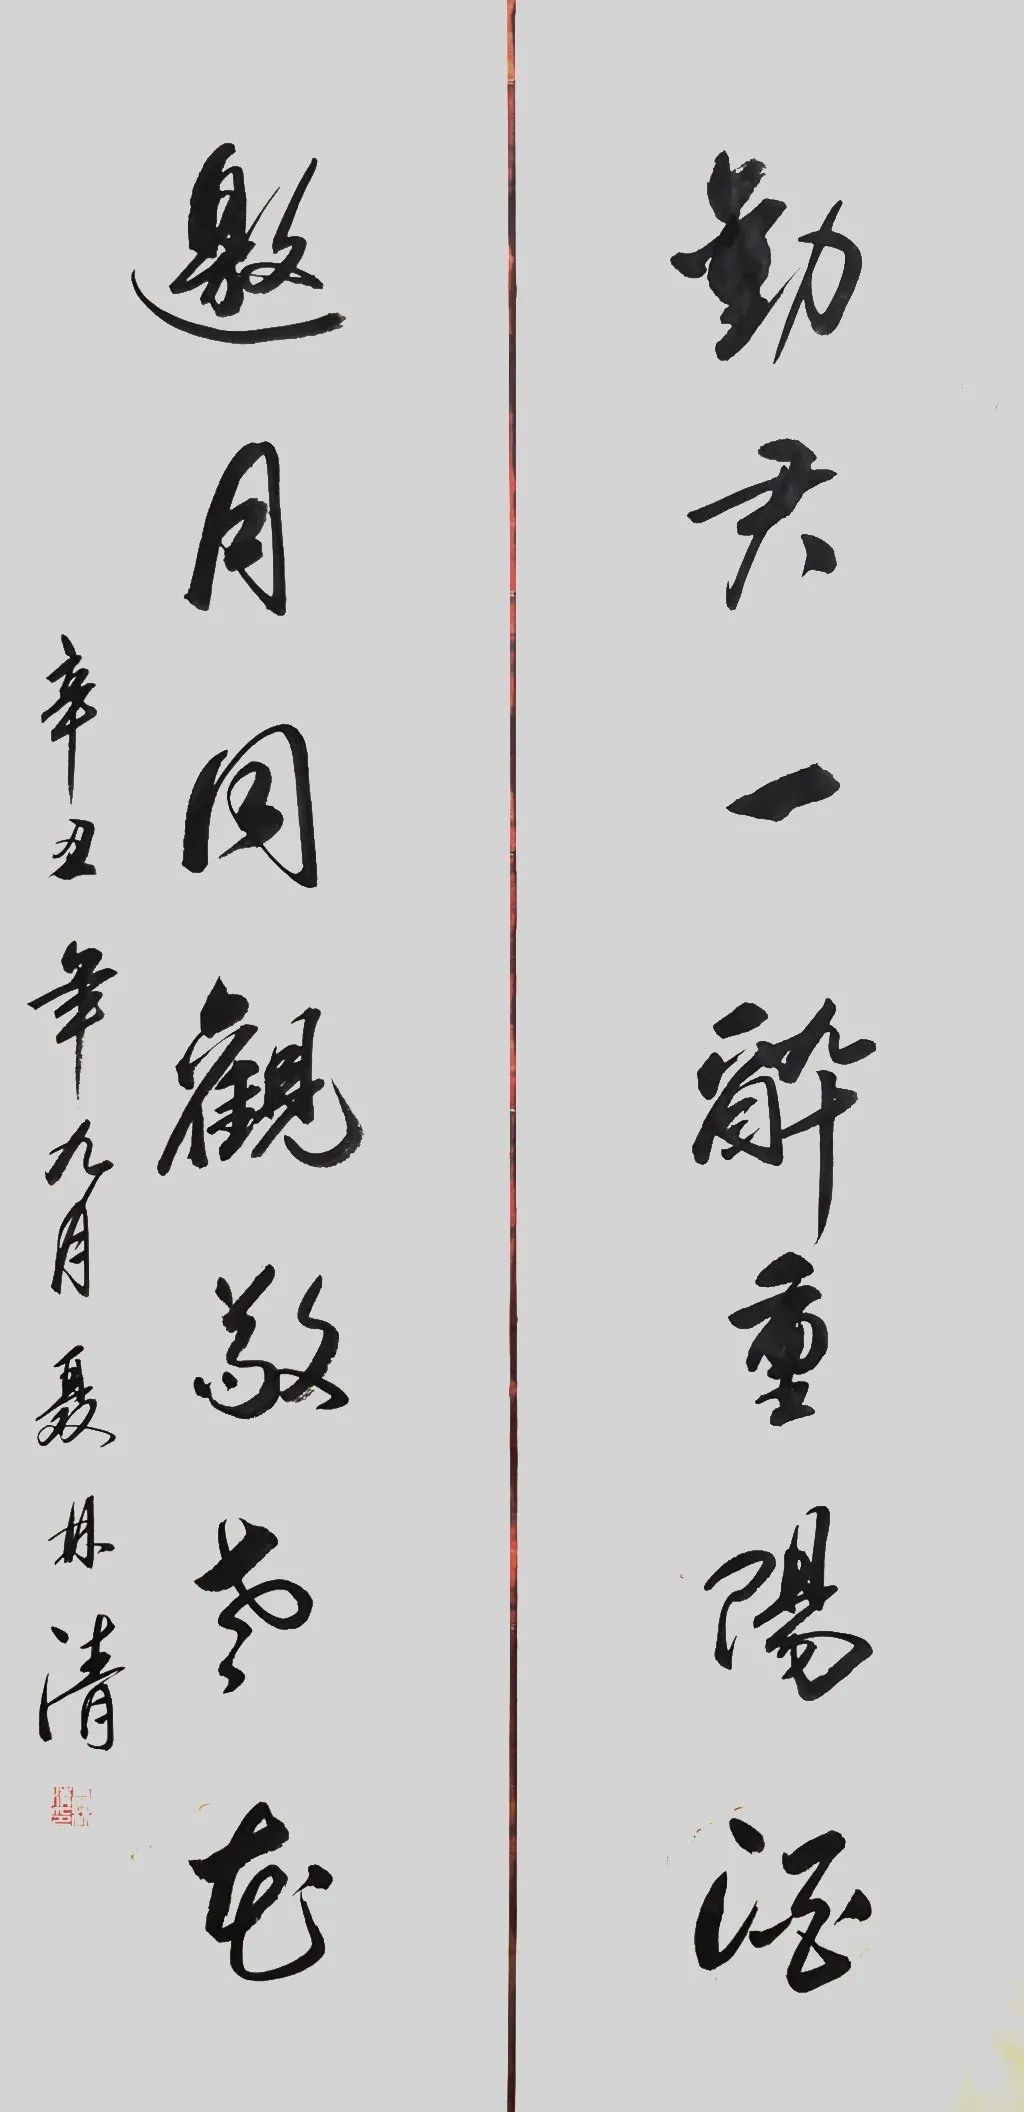 勸君一醉重陽酒
邀月同觀敬老花
辛丑年九月聂林清